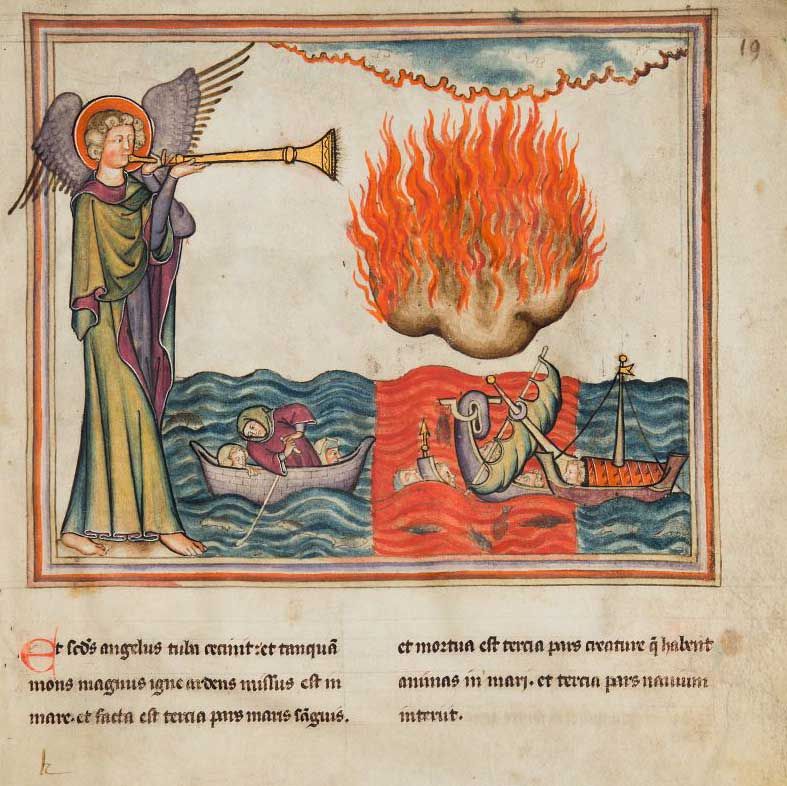 19
Et scd's angelus tuba cecinit: et tanquā
mons magnus igne ardens missus est in
mare. et facta est tercia pars maris sāguis.
et mortua est tercia pars creature q̄ habent
animas in mari. et tercia pars nauium
interiit.
k